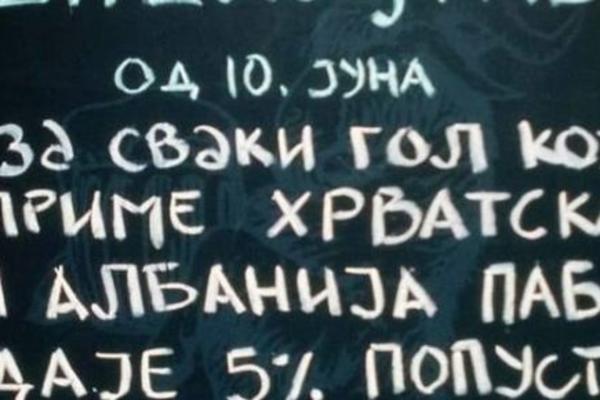 ОД 10. ЈУНА
ЗА СВАКИ ГОЛ КО
ПРИМЕ ХРВАТСКА
И АЛБАНИЈА ПАБ
ДАЈЕ 5% ПОПУСТ